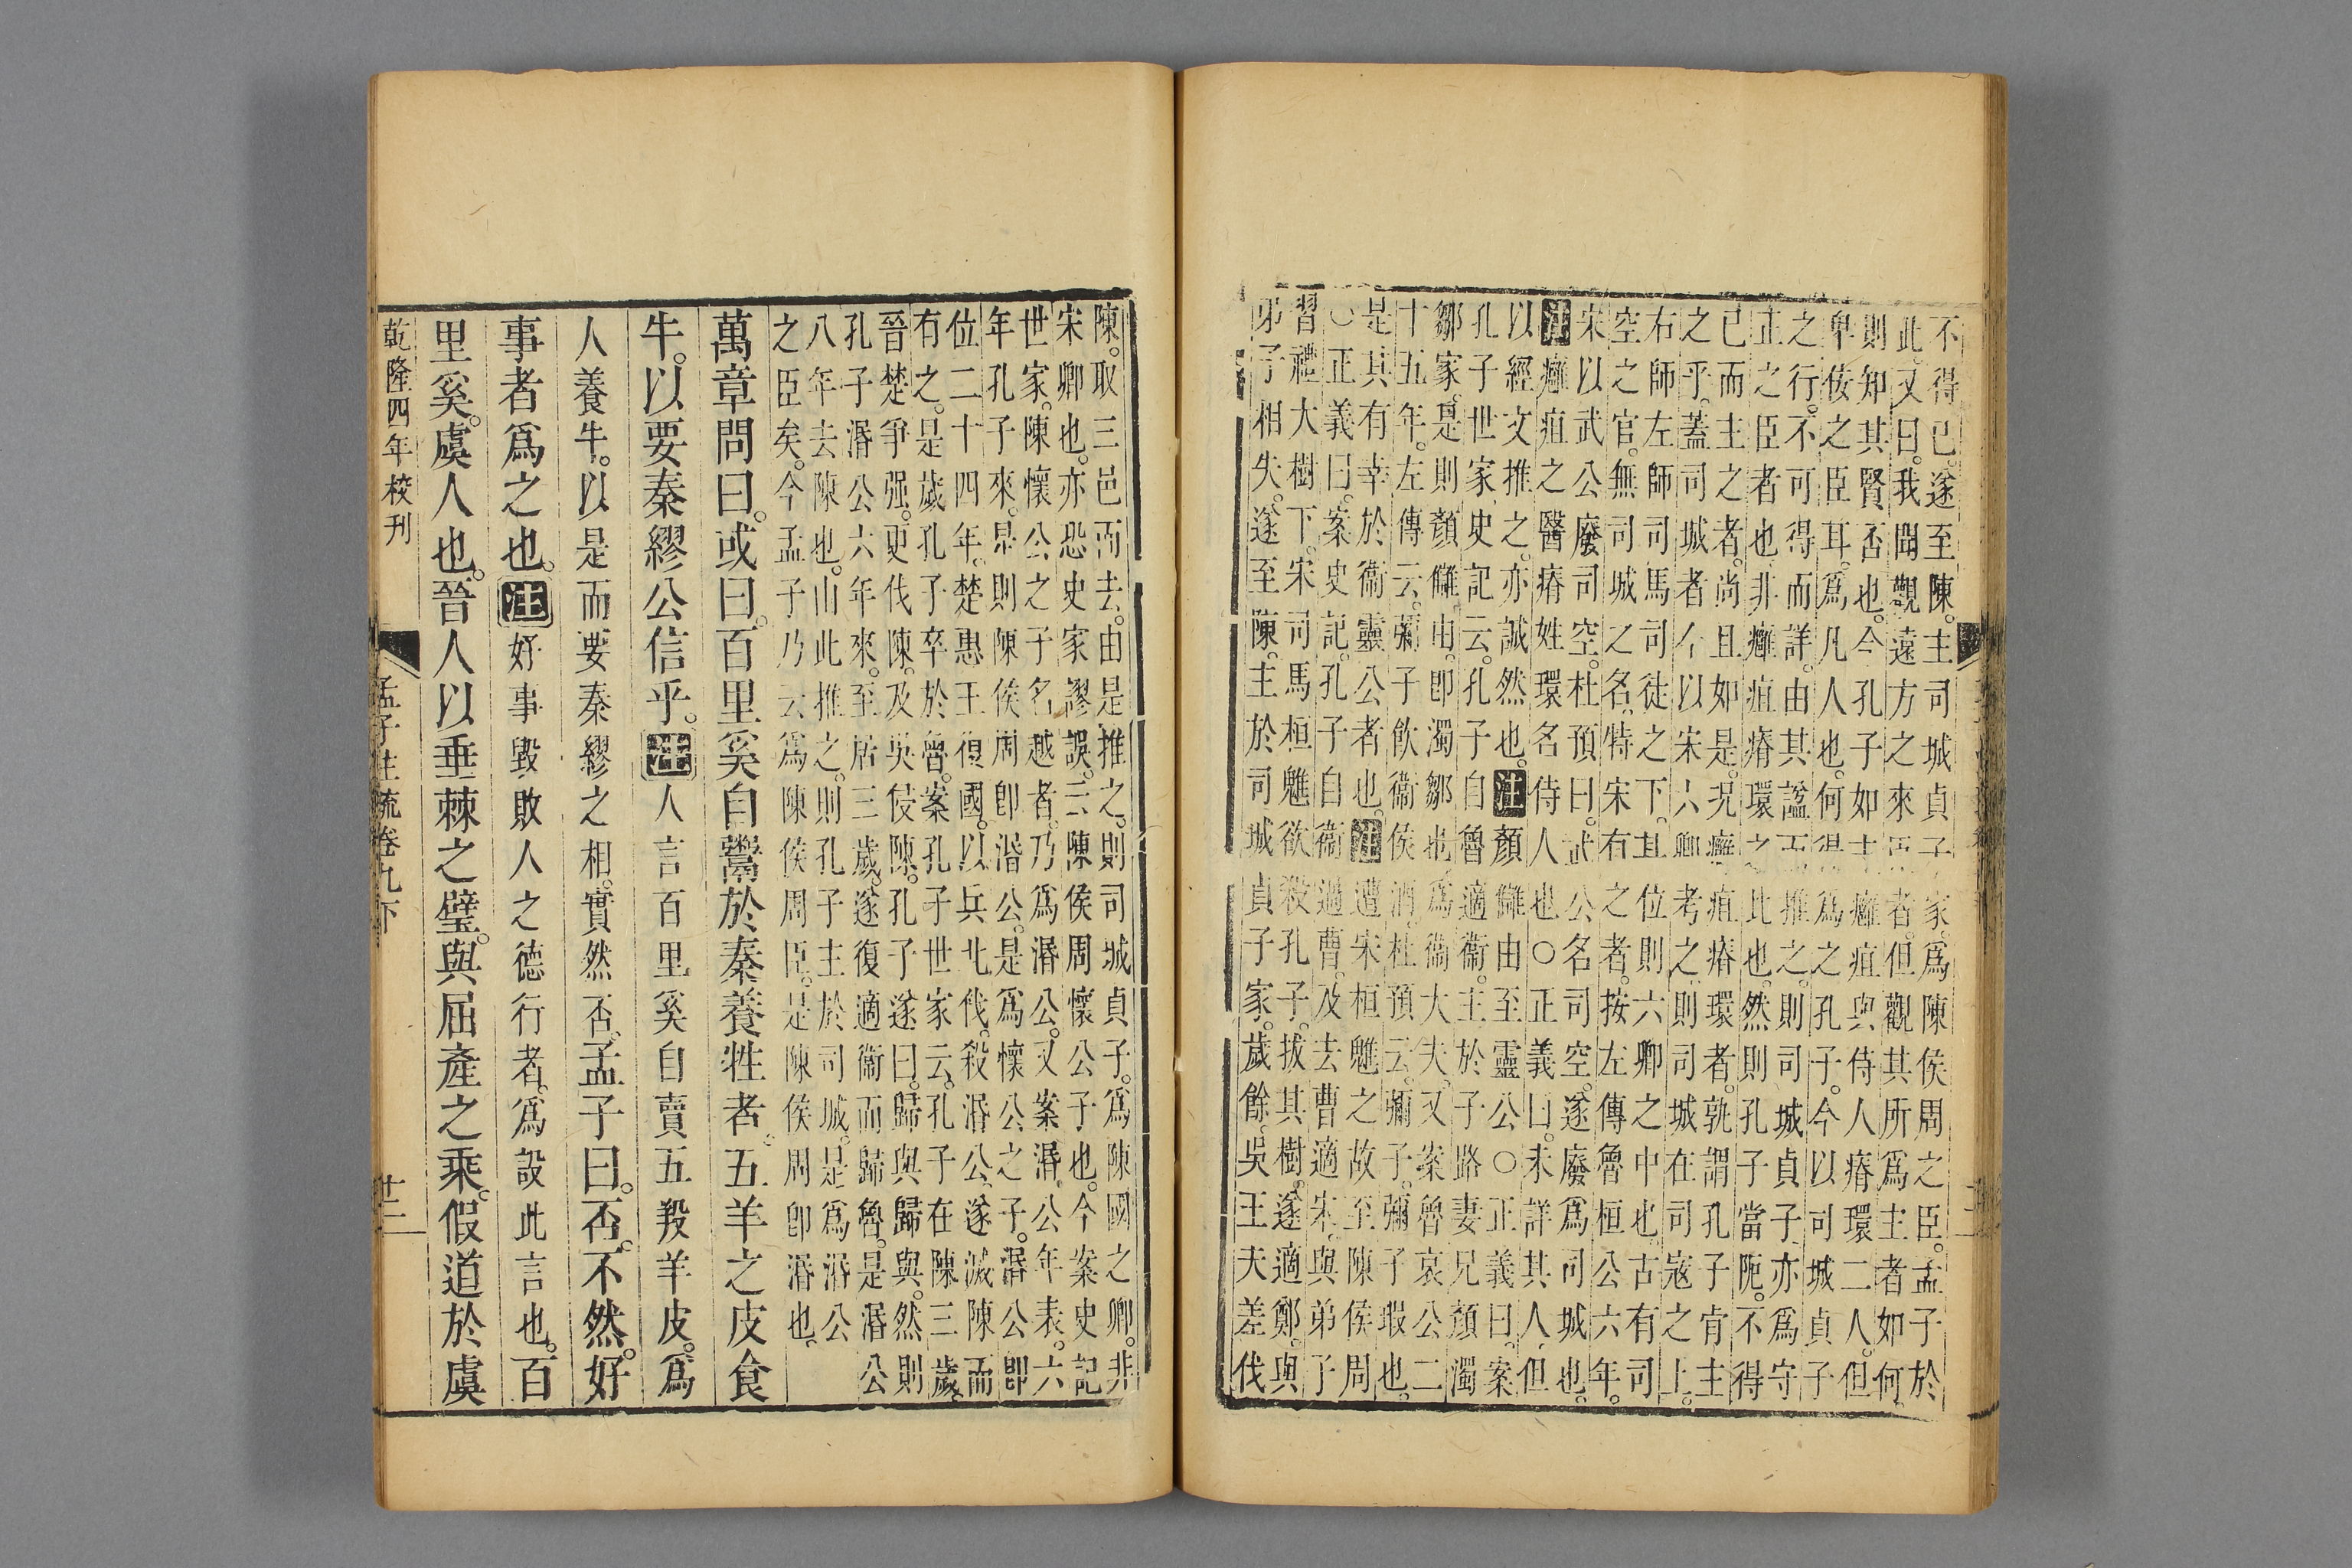 不得已。遂至陳。主司城貞子家。爲陳侯周之臣。孟子於
此。又曰。我聞觀遠方之來臣者。但觀其所爲主者如何
則知其賢否也。今孔子如主癰疽與侍人瘠環二人。但
卑佞之臣耳。爲凡人也。何得爲之孔子。今以司城貞子
之行。不可得而詳。由其諡而推之。則司城貞子亦爲守
正之臣者也。非癰疽瘠環之比也。然則孔子當阨。不得
已而主之者。尚且如是。況癰疽瘠環者。孰謂孔子肯主
之乎。蓋司城者。今以宋六卿考之。則司城在司寇之上。
右師左師司馬司徒之下。其位則六卿之中也。古有司
空之官。無司城之名。特宋右之者。按左傳魯桓公六年。
宋以武公廢司空。杜預曰。武公名司空。遂廢爲司城也。
注癰疽之醫瘠姓環名侍人也○正義曰。未詳其人。但
以經文推之。亦誠然也。注顏讎由至靈公○正義曰。案
孔子世家史記云。孔子自魯適衞。主於子路妻兄顏濁
鄒家。是則顏讎由。卽濁鄒也。爲衞大夫。又案魯哀公二
十五年。左傳云。彌子飲衞侯酒。杜預云。彌子。彌子瑕也。
是其有幸於衞靈公者也。注遭宋桓魋之故至陳侯周
○正義曰。案史記。孔子自衞過曹。及去曹適宋。與弟子
習禮大樹下。宋司馬桓魋欲殺孔子。拔其樹。遂適鄭。與
弟子相失。遂至陳。主於司城貞子家。歲餘。吳王夫差伐
陳。取三邑而去。由是推之。則司城貞子。爲陳國之卿。非
宋卿也。亦恐史家謬誤。云陳侯周懷公子也。今案史記
世家。陳懷公之子名越者。乃爲湣公。又案湣公年表。六
年孔子來。是則陳侯周卽湣公。是爲懷公之子。湣公卽
位二十四年。楚惠王復國。以兵北伐。殺湣公。遂滅陳而
有之。是歲孔子卒於魯。案孔子世家云。孔子在陳三歲。
晉楚爭强。更伐陳。及吳侵陳。孔子遂曰。歸與歸與。然則
孔子湣公六年來。至居三歲。遂復適衞而歸魯。是湣公
八年去陳也。由此推之。則孔子主於司城。是爲湣公
之臣矣。今孟子乃云爲陳侯周臣。是陳侯周卽湣也。
萬章問曰。或曰。百里奚自鬻於秦養牲者。五羊之皮食
牛。以要秦繆公信乎。注人言百里奚自賣五羖羊皮。爲
人養牛。以是而要秦繆之相。實然否。孟子曰。否。不然。好
事者爲之也。注好事毀敗人之德行者。爲設此言也。百
里奚。虞人也。晉人以垂棘之璧。與屈產之乘。假道於虞
乾隆四年校刊
孟子注疏卷九下
十二